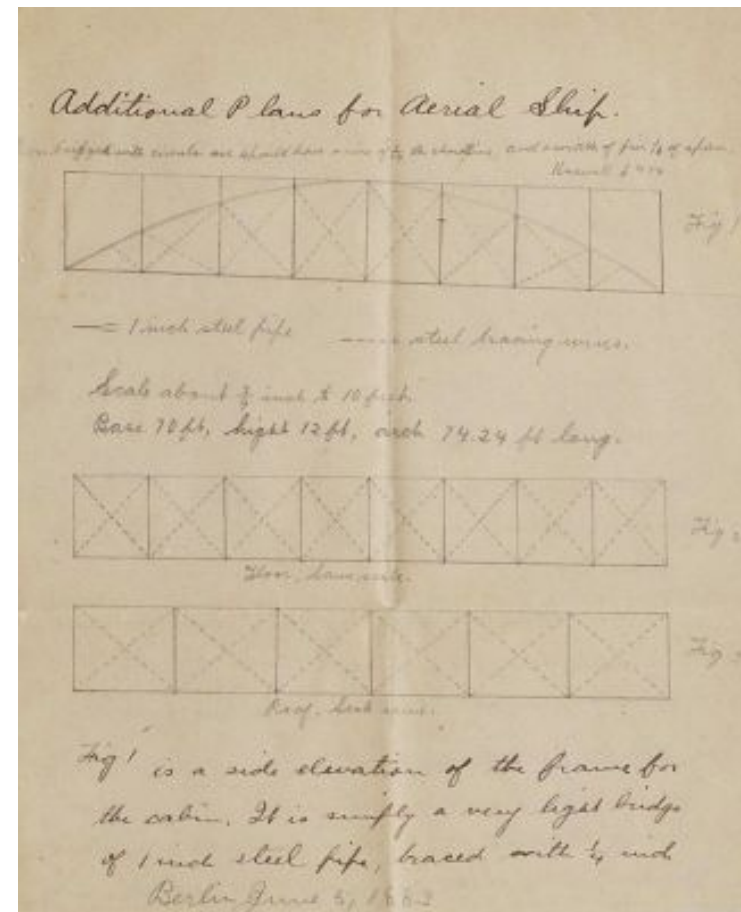 Additional Plans for Aerial Ship.
with circular arc should have a of the and a of
Fig 1
— = 1 inch steel pipe ---- steel bracing wires.
Scale about inch to 10 feet
Base 70 ft, hight 12 ft, arch 74.24 ft long.
Fig
Floor, same scale.
Fig
Roof. Scale same.
Fig 1 is a side elevation of the frame for
the cabin. It is simply a very light bridge
of 1 inch steel pipe, braced with ¼ inch
Berlin, June 5,